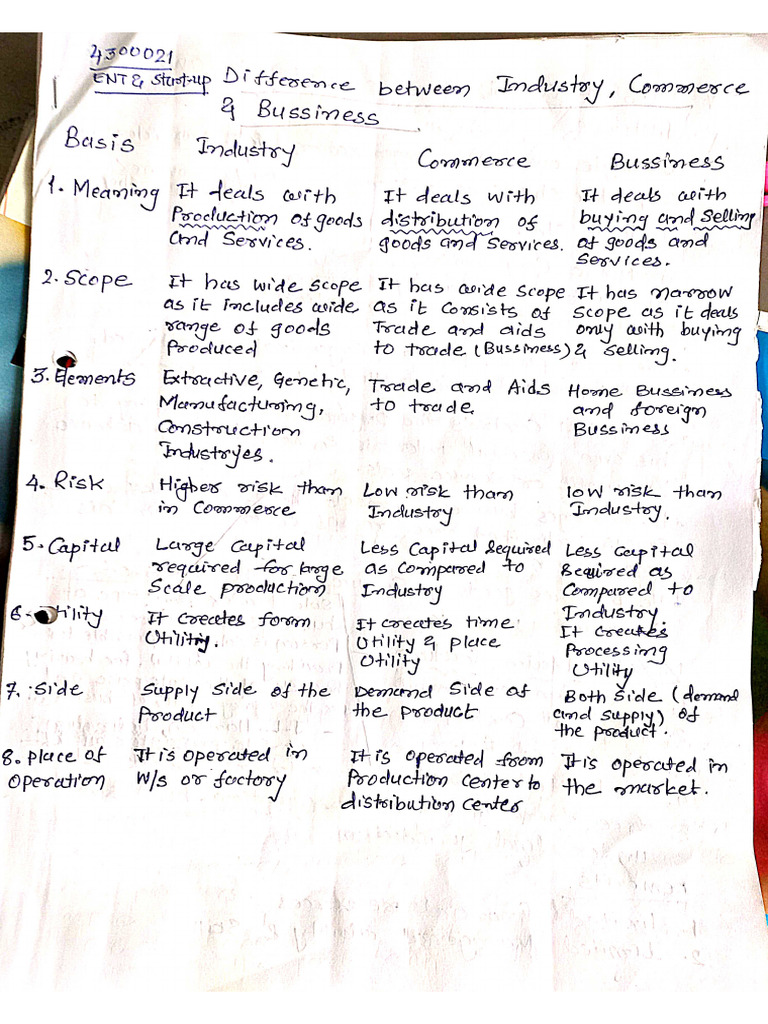 4300021
ENT & Start-up
Difference between Industry, Commerce
& Bussiness
Basis Industry Commerce Bussiness
1. Meaning It deals with It deals with It deals with
Production of goods distribution of buying and selling
and Services. goods and Services. of goods and
Services.
2. Scope It has wide scope It has wide scope It has narrow
as it includes wide as it consists of scope as it deals
range of goods Trade and aids only with buying
Produced to trade (Bussiness) & selling.
3. Elements Extractive, Genetic, Trade and Aids Home Bussiness
Manufacturing, to trade. and foreign
Construction Bussiness
Industryes.
4. Risk Higher risk than Low risk than low risk than
in Commerce Industry Industry.
5. Capital Large Capital Less Capital Required Less Capital
required for large as compared to Required as
Scale production Industry Compared to
Industry.
6. Utility It creates form It creates time It creates
Utility. Utility & place Processing
Utility Utility
7. Side Supply Side of the Demand Side of Both Side (demand
Product the product and supply) of
the product.
8. place of It is operated in It is operated from It is operated in
operation W/s or factory Production center to the market.
distribution center